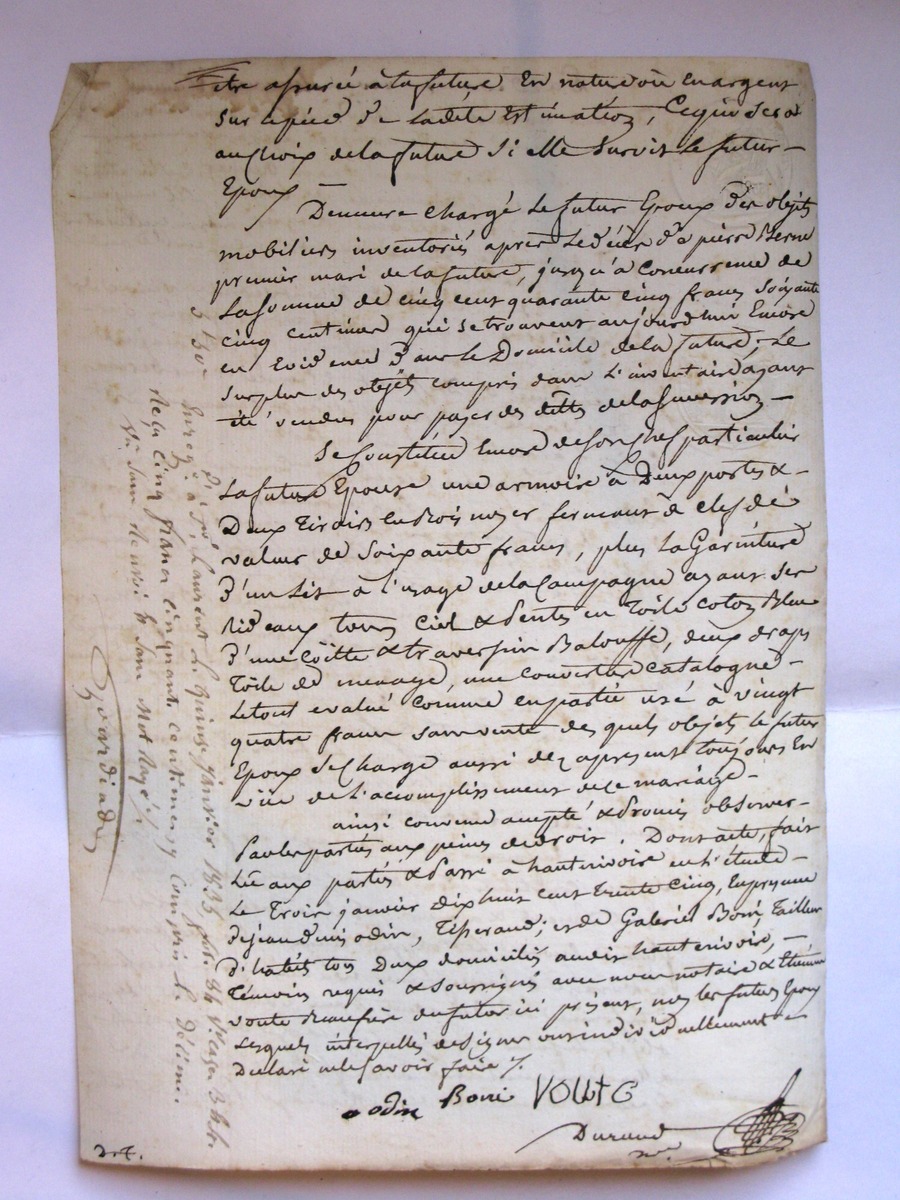 être assurée à la future En nature où en argent
sur le pied de ladite Estimation, Ce qui sera
au Choix de la future Si elle Survit Le futur
Epoux
Demeure Chargé Le futur Epoux des objets
mobiliers inventoriés après Le décès de pierre Berne
premier mari de la future, jusqu'à Concurrence de
La Somme de cinq cent quarante cinq francs Soixante
cinq centimes qui se trouvent aujourd'hui Encore
en Evidence dans Le Domicile de la future; Le
Surplus des objets compris dans L'inventaire ayant
été vendus pour payer des dettes de la Succession
Se Constitue Encore de Son Chef particulier
La future Epouse une armoire à Deux portes &
Deux Tiroirs en Bois noyer fermant à Clef de
valeur de Soixante francs, plus La Garniture
D'un Lit à L'usage de la Campagne ayant Ses
Rideaux tours Ciel & Pentes en Toile coton Bleue
D'une Coitte & traversin Balouffe, deux draps
Toile de menage, une Couverture Catalogne
Le tout evalué comme en partie usé à vingt
quatre francs Samvente des quels objets Le futur
Epoux Se Charge aussi dez apresent toujours En
vüe de L'accomplissement de ce mariage
ainsi convenu accepté & Promis observer
Par les parties aux peines de droit. Dont acte, fait
Lû aux parties & Passé à hauterivoire en L'étude
Le Trois janvier Dix huit cent Trente Cinq, En presence
de jean denis odin, Tisserand; et de Galeries Boni Tailleur
D'habits tous Deux domiciliés audit hauterivoire,
Témoins requis & Soussignés avec nous notaire &
voute Beaufrère du futur ici présent, non les futurs Epoux
Lesquels interpellés de Signer ont individuellement
Declaré ne le Savoir faire
odin Boni VOUtC
Durand
nre
Enregé à St Laurent le quinze janvier 1835, fo 84 Vo
Reçu Cinq francs cinquante centimes y Compris le décime.